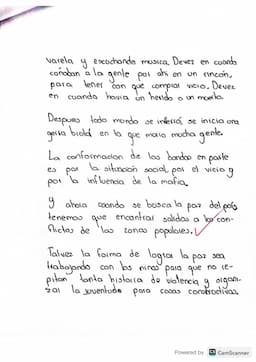 varela y escuchando musica. Devez en cuando
coñoban a la gente por ahi en un rincon,
para tener con que comprar vicio. Devez
en cuando havia un herido o un muerto.
Despues todo mundo se inferió, se inicio una
gerra brotal en la que murio mucha gente.
La conformacion de los bandos en parte
es por la situacion social, por el vicio y
por la influencia de la mafia.
Y ahora cuando se busca la paz del país
tenemos que encontrar salidas a los con-
flictos de las zonas populares.
Talvez la forma de lograr la paz sea
trabajando con los niños para que no re-
pitan tanta historia de violencia y organi-
zar la juventude para cosas constructivas.
Powered by CamScanner